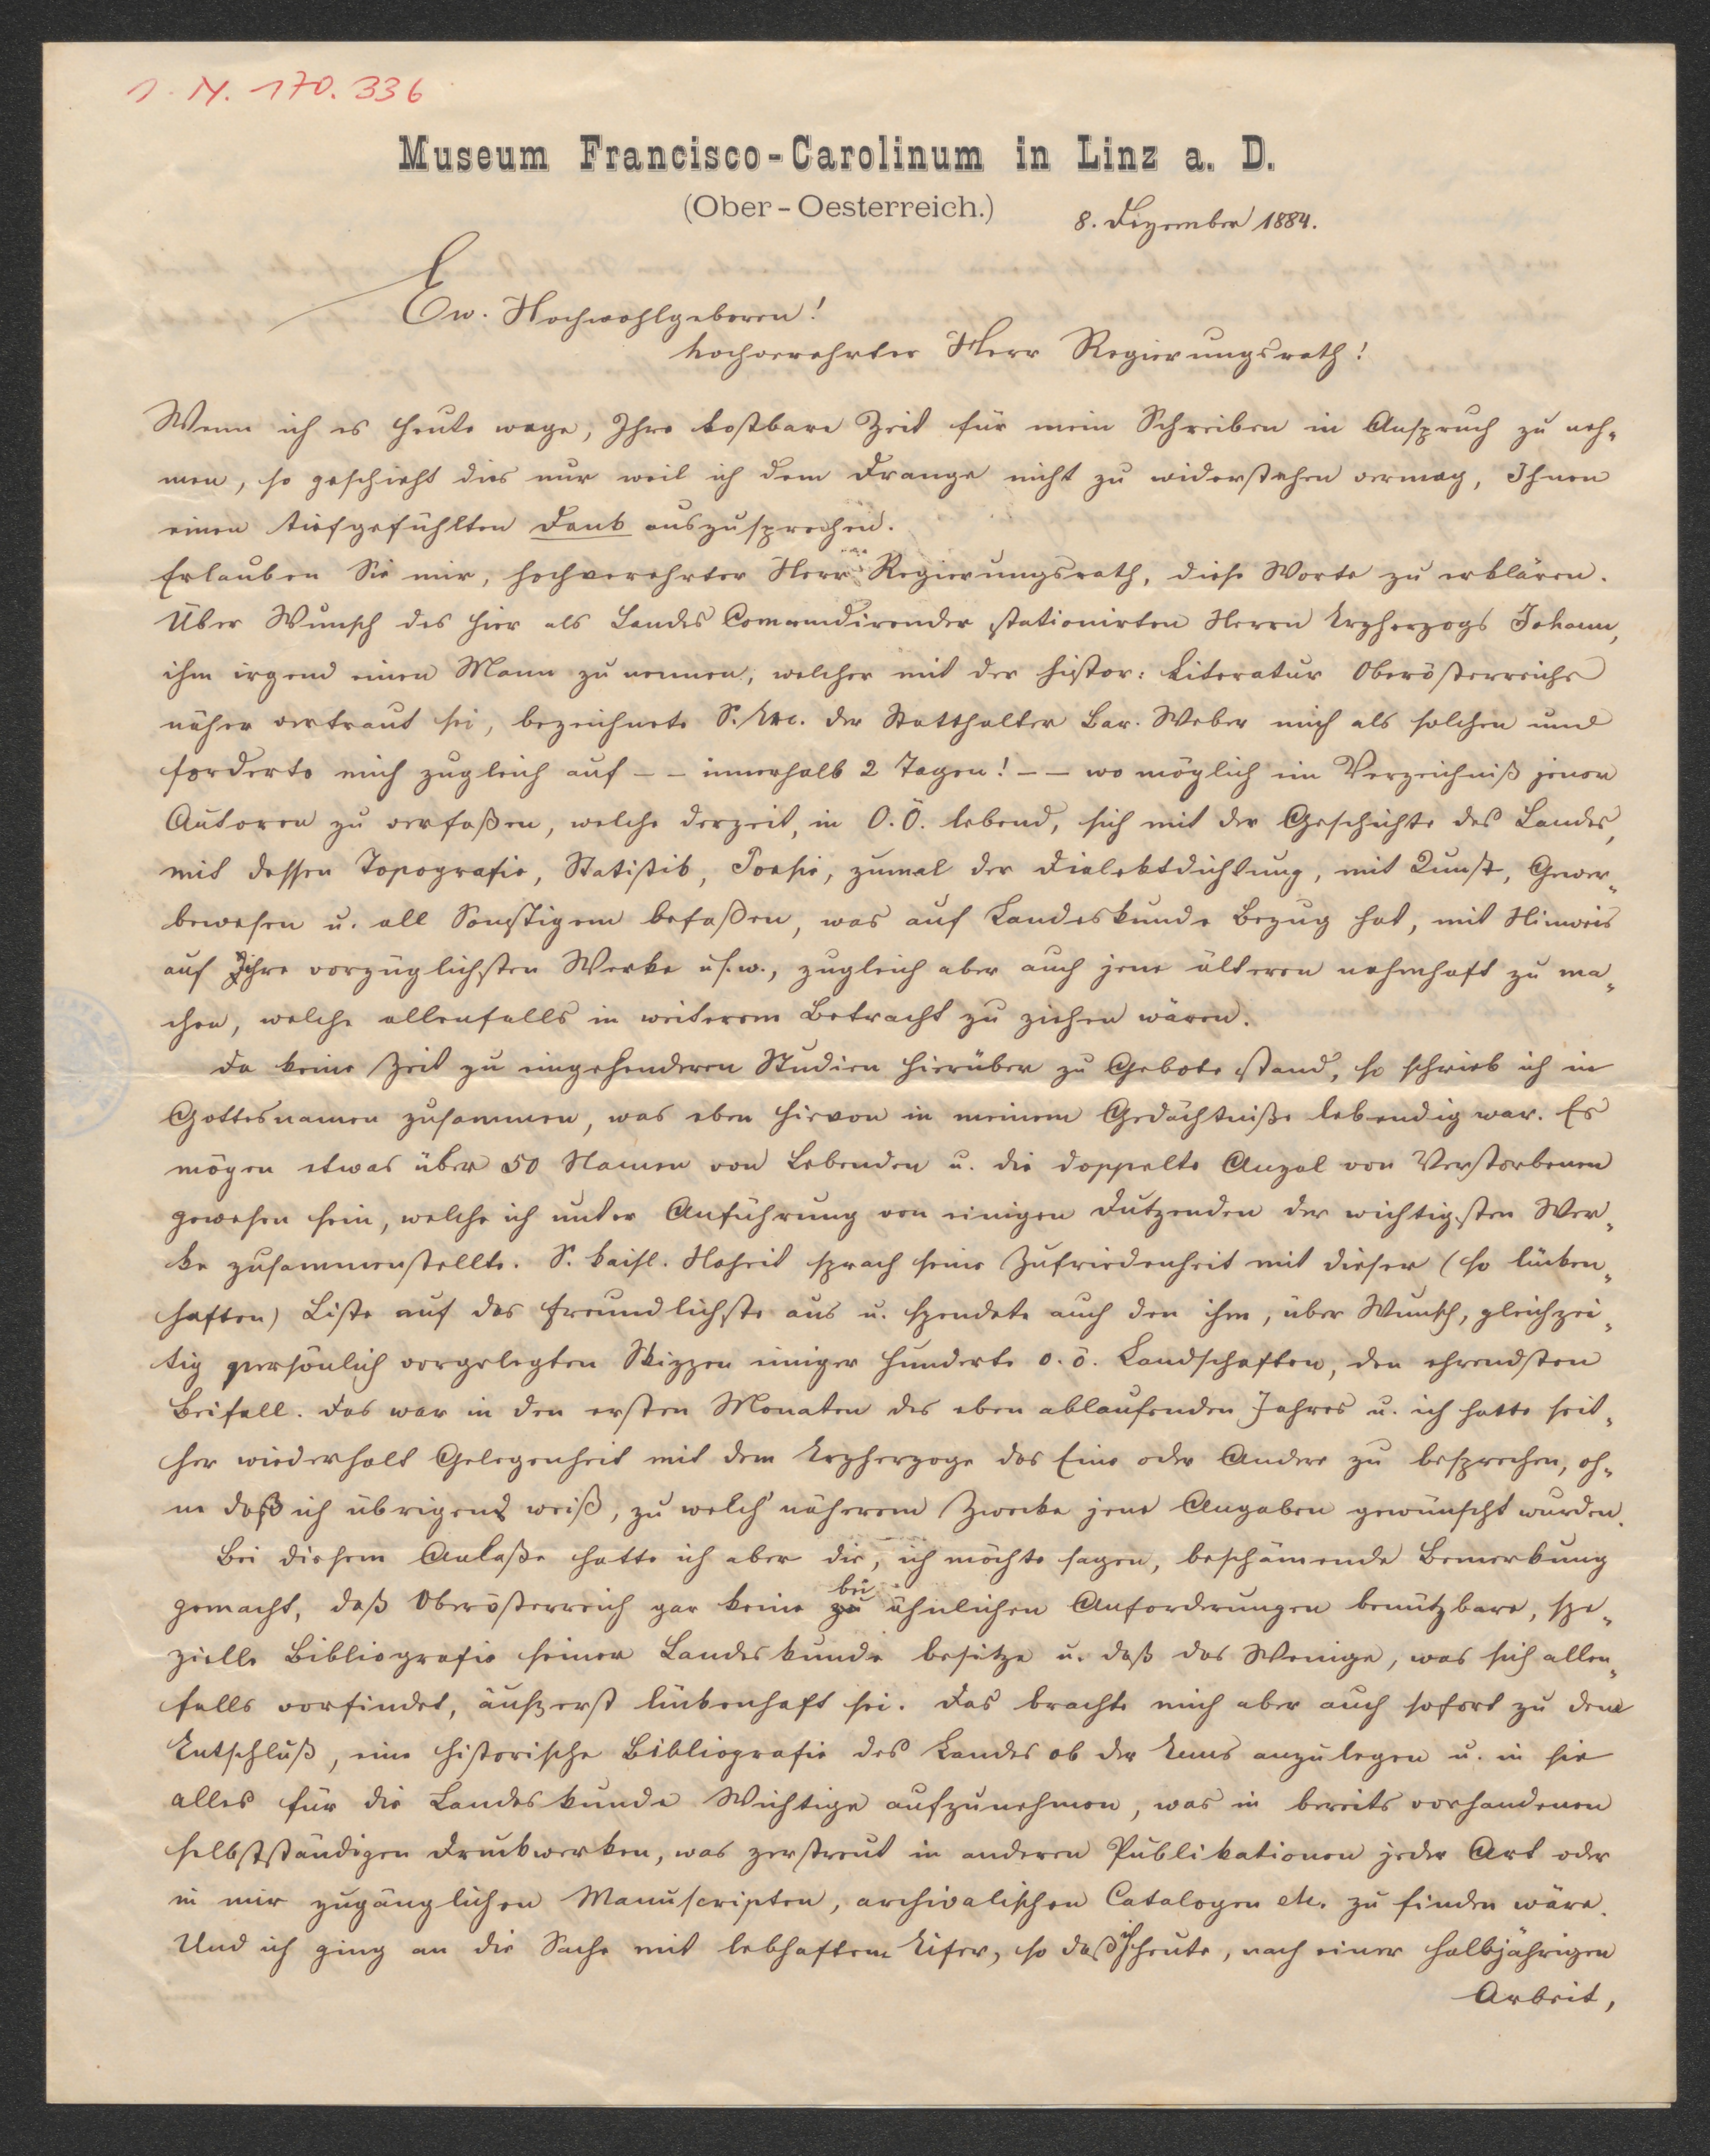 I. N. 170.336
Museum Francisco-Carolinum in Linz a. D.
(Ober-Oesterreich.)
8. Dezember 1884.
Ew. Hochwohlgeboren!
hochverehrter Herr Regierungsrath!
Wenn ich es heute wage, Ihre kostbare Zeit für mein Schreiben in Anspruch zu neh-
men, so geschieht dies nur weil ich dem Drange nicht zu widerstehen vermag, Ihnen
einen tiefgefühlten Dank auszusprechen.
Erlauben Sie mir, hochverehrter Herr Regierungsrath, diese Worte zu erklären.
Über Wunsch des hier als Landes Commandirender stationirten Herrn Erzherzogs Johann,
ihm irgend einen Mann zu nennen, welcher mit der histor: Literatur Oberösterreichs
näher vertraut sei, bezeichnete S. Exc. der Statthalter Bar. Weber mich als solchen und
forderte mich zugleich auf -- innerhalb 2 Tagen! -- wo möglich ein Verzeichniß jener
Autoren zu verfaßen, welche derzeit, in O.Ö. lebend, sich mit der Geschichte des Landes,
mit dessen Topografie, Statistik, Poesie, zumal der Dialektdichtung, mit Kunst, Gewer-
bewesen u. all Sonstigem befaßen, was auf Landeskunde Bezug hat, mit Hinweis
auf Ihre vorzüglichsten Werke u.s.w., zugleich aber auch jene älteren nahmhaft zu ma-
chen, welche allenfalls in weiterem Betracht zu ziehen wären.
Da keine Zeit zu eingehenderen Studien hierüber zu Gebote stand, so schrieb ich in
Gottesnamen zusammen, was eben hievon in meinem Gedächtniße lebendig war. Es
mögen etwas über 50 Namen von Lebenden u. die doppelte Anzal von Verstorbenen
gewesen sein, welche ich unter Anführung von einigen Dutzenden der wichtigsten Wer-
ke zusammenstellte. S. kaisl. Hoheit sprach seine Zufriedenheit mit dieser (so lücken-
haften) Liste auf das freundlichste aus u. spendete auch den ihm, über Wunsch, gleichzei-
tig persönlich vorgelegten Skizzen einiger Hunderte o. ö. Landschaften, den ehrendsten
Beifall. Das war in den ersten Monaten des eben ablaufenden Jahres u. ich hatte seit-
her wiederholt Gelegenheit mit dem Erzherzoge das Eine oder Andere zu besprechen, oh-
ne daß ich übrigens weiß, zu welch' näherem Zwecke jene Angaben gewünscht wurden.
Bei diesem Anlaße hatte ich aber die, ich möchte sagen, beschämende Bemerkung
gemacht, daß Oberösterreich gar keine bei ähnlichen Anforderungen benützbare, spe-
zielle Bibliografie seiner Landeskunde besitze u. daß das Wenige, was sich allen-
falls vorfindet, äußerst lückenhaft sei. Das brachte mich aber auch sofort zu dem
Entschluß, eine historische Bibliografie des Landes ob der Enns anzulegen u. in sie
alles für die Landeskunde Wichtige aufzunehmen, was in bereits vorhandenen
selbstständigen Druckwerken, was zerstreut in anderen Publikationen jeder Art oder
in mir zugänglichen Manuscripten, archivalischen Catalogen etc. zu finden wäre.
Und ich ging an die Sache mit lebhaftem Eifer, so daß ich heute, nach einer halbjährigen
Arbeit,